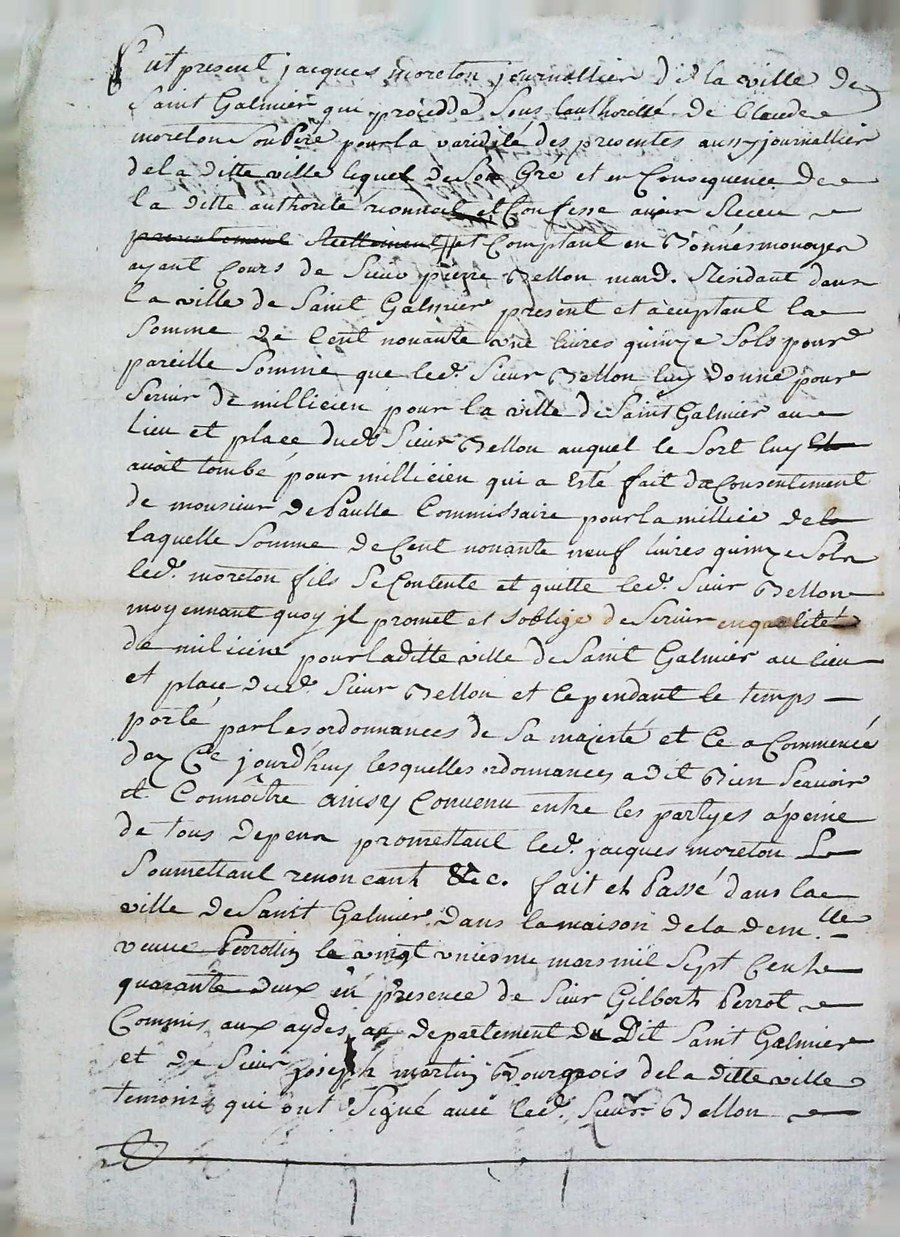 Fut present jacques moreton journallier de la ville de
Saint Galmier qui procedde Sous lauthorette de Claude
moreton Son Pere pour la varidité des presentes aussy journallier
dela ditte ville lequel de Son Gré et en Consequence de
la ditte authorité et Confesse avoir Receu
presentement Reellement et Comptant en Bonnes monoyes
ayant Cours de Sieur pierre Bellon mard. Residant dans
la ville de Saint Galmier present et aceptant la
Somme de Cent nonante une livres quinze Sols pour
pareille Somme que led. Sieur Bellon luy donne pour
Servir de millicien pour la ville de Saint Galmier au
Lieu et place dud. Sieur Bellon auquel le Sort luy
avoit tombé pour millicien qui a Esté fait du Consentement
de monsieur de Paulle Commissaire pour la millice de la
laquelle Somme de Cent nonante neuf livres quinze Sols
led. moreton fils Se Contente et quitte led. Sieur Bellon
moyennant quoy jl promet et Soblige de Servir en qualité
de milicien pour laditte ville de Saint Galmier au lieu
et place dud. Sieur Bellon et Ce pendant le temps
porté par les ordonnances de Sa majesté et Ce a Commencé
dez Ce jourdhuy lesquelles ordonnances a dit Bien Scavoir
et Connoître ainsy Convenu entre les partyes a peine
de tous depens promettant led. jacques moreton
Soumettant renoncant &c. fait et Passé dans la
ville de Saint Galmier dans la maison de la dem.lle
veuve Perrottin le vingt uniesme mars mil Sept Cent
quarante deux en presence de Sieur Gilbert Perrot
Commis aux aydes au departement du Dit Saint Galmier
et de Sieur joseph martin Bourgeois dela ditte ville
temoins qui ont Signé avec led. Sieur Bellon